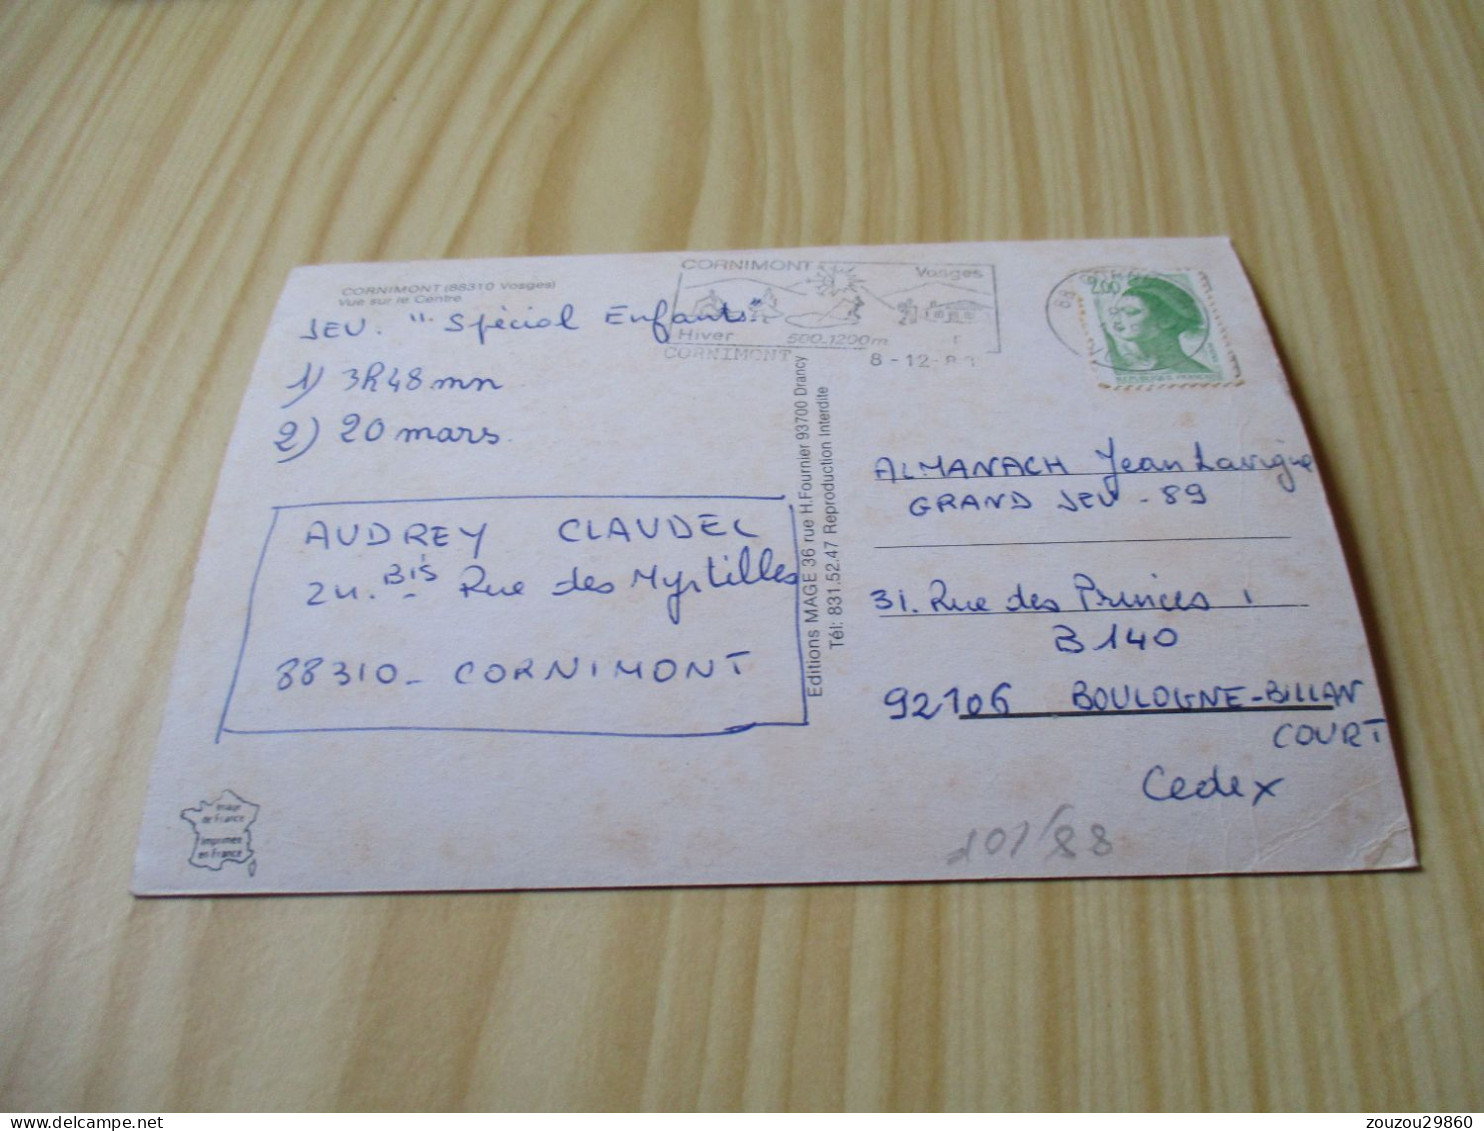 CORNIMONT (88310 Vosges)
Vue sur le Centre
JEU. "Spécial Enfants"
1) 3h48mn
2) 20 mars.
AUDREY CLAUDEL
24. BIS Rue des Myrtilles
88310 - CORNIMONT
Image
de France
Imprimée
en France
Editions MAGE 36 rue H.Fournier 93700 Drancy
Tél: 831.52.47 Reproduction Interdite
CORNIMONT Vosges
Hiver 500-1200m
CORNIMONT 8-12-88
2,00
ALMANACH Jean Lavigne
GRAND JEU - 89
31. Rue des Princes
B 140
92106 BOULOGNE-BILLAN
COURT
Cedex
101/88
zouzou29860